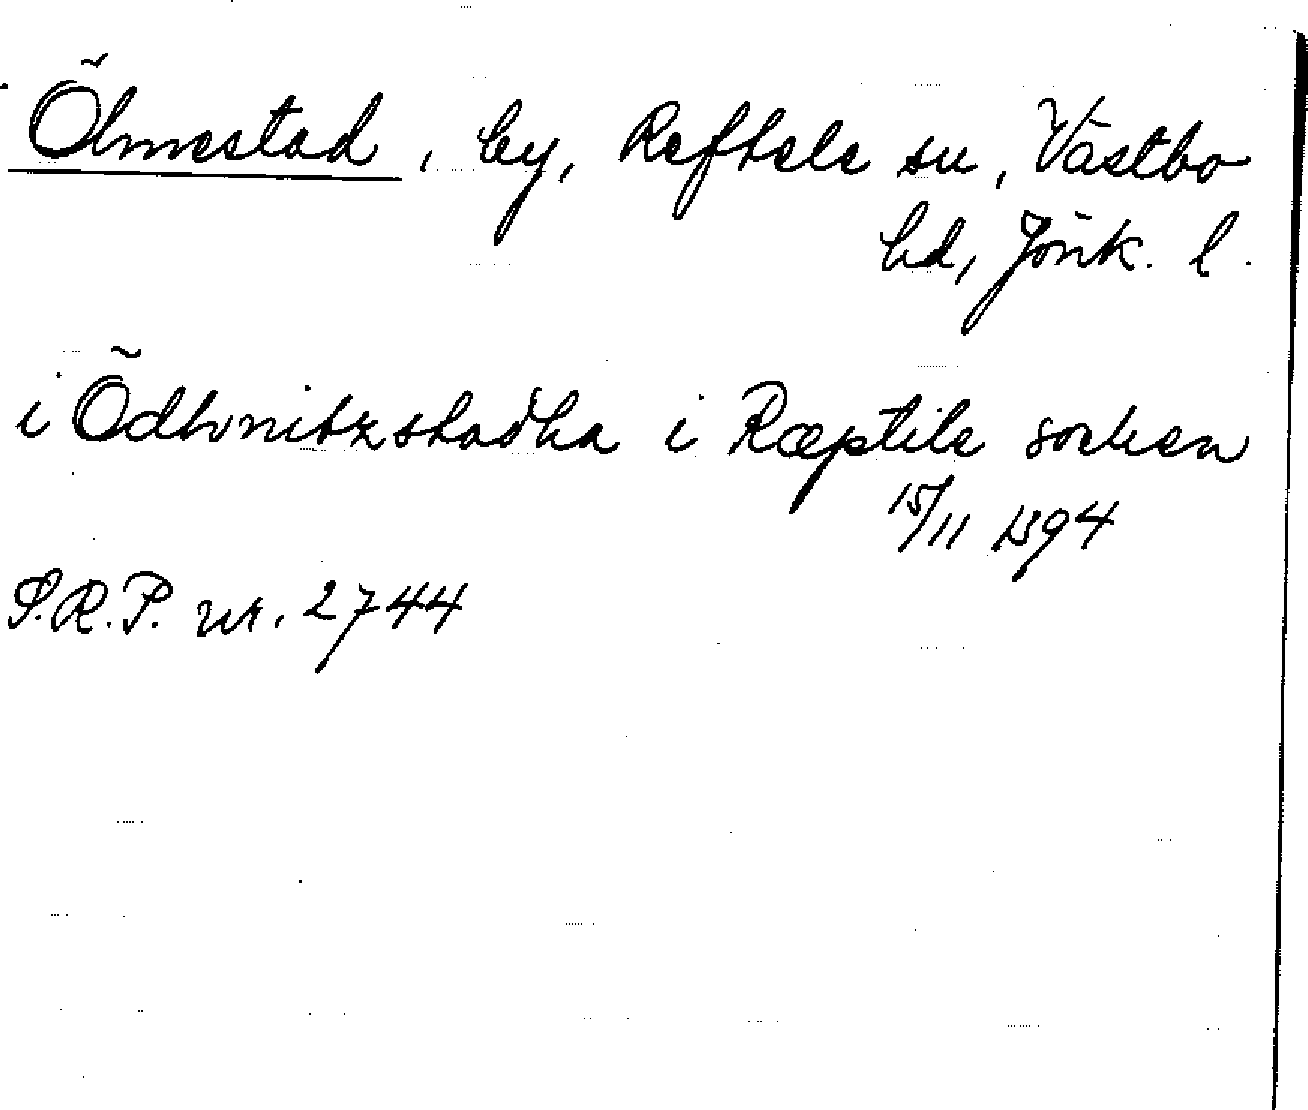 Ölmestad, by, Reftele sn, Västbo
hd, Jönk. l.
i Ödhmitzstadha i Ræptile sokken
15/11 1394
S.R.P. nr. 2744